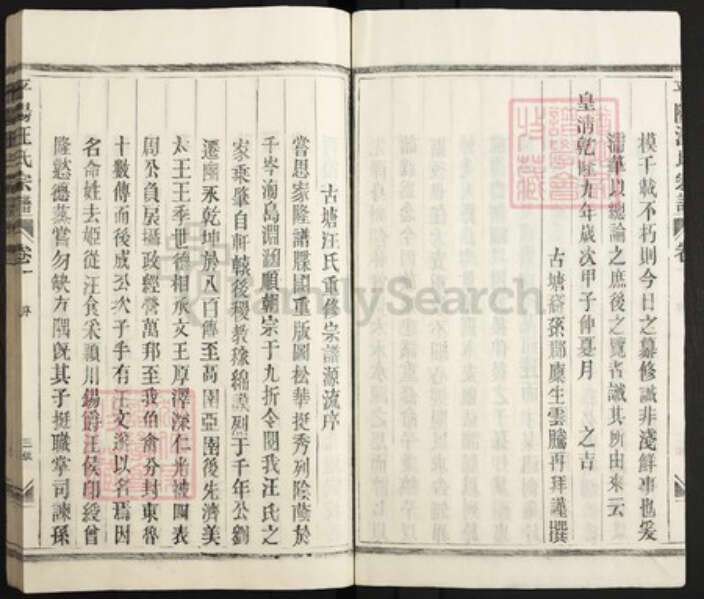 模千載不朽則今日之纂修誠非淺鮮事也爰
濡筆以總論之庶後之覽者識其所由來云
皇清乾隆九年歲次甲子仲夏月 之吉
古塘裔孫郡廩生雲騰再拜謹撰
古塘汪氏重修宗譜源流序
嘗思家隆譜牒國重版圖松華挺秀列陰蔭於
千岑海島淵涵願朝宗于九折令閱我汪氏之
家乘肇自軒轅後稷教稼綿謨烈于千年公劉
遷豳永乾坤於八百傳至高圉亞圉後先濟美
太王王季世德相承文王厚澤深仁光被四表
周公負扆攝政經營萬邦至我伯禽分封東魯
十數傳而後成公次子手有汪文遂以名焉因
名命姓去姬從汪食采潁川錫爵汪侯印綬曾
隆懿德蒸嘗勿缺方隅既其子挺職掌司諫孫
平陽汪氏宗譜 卷一 序
FamilySearch